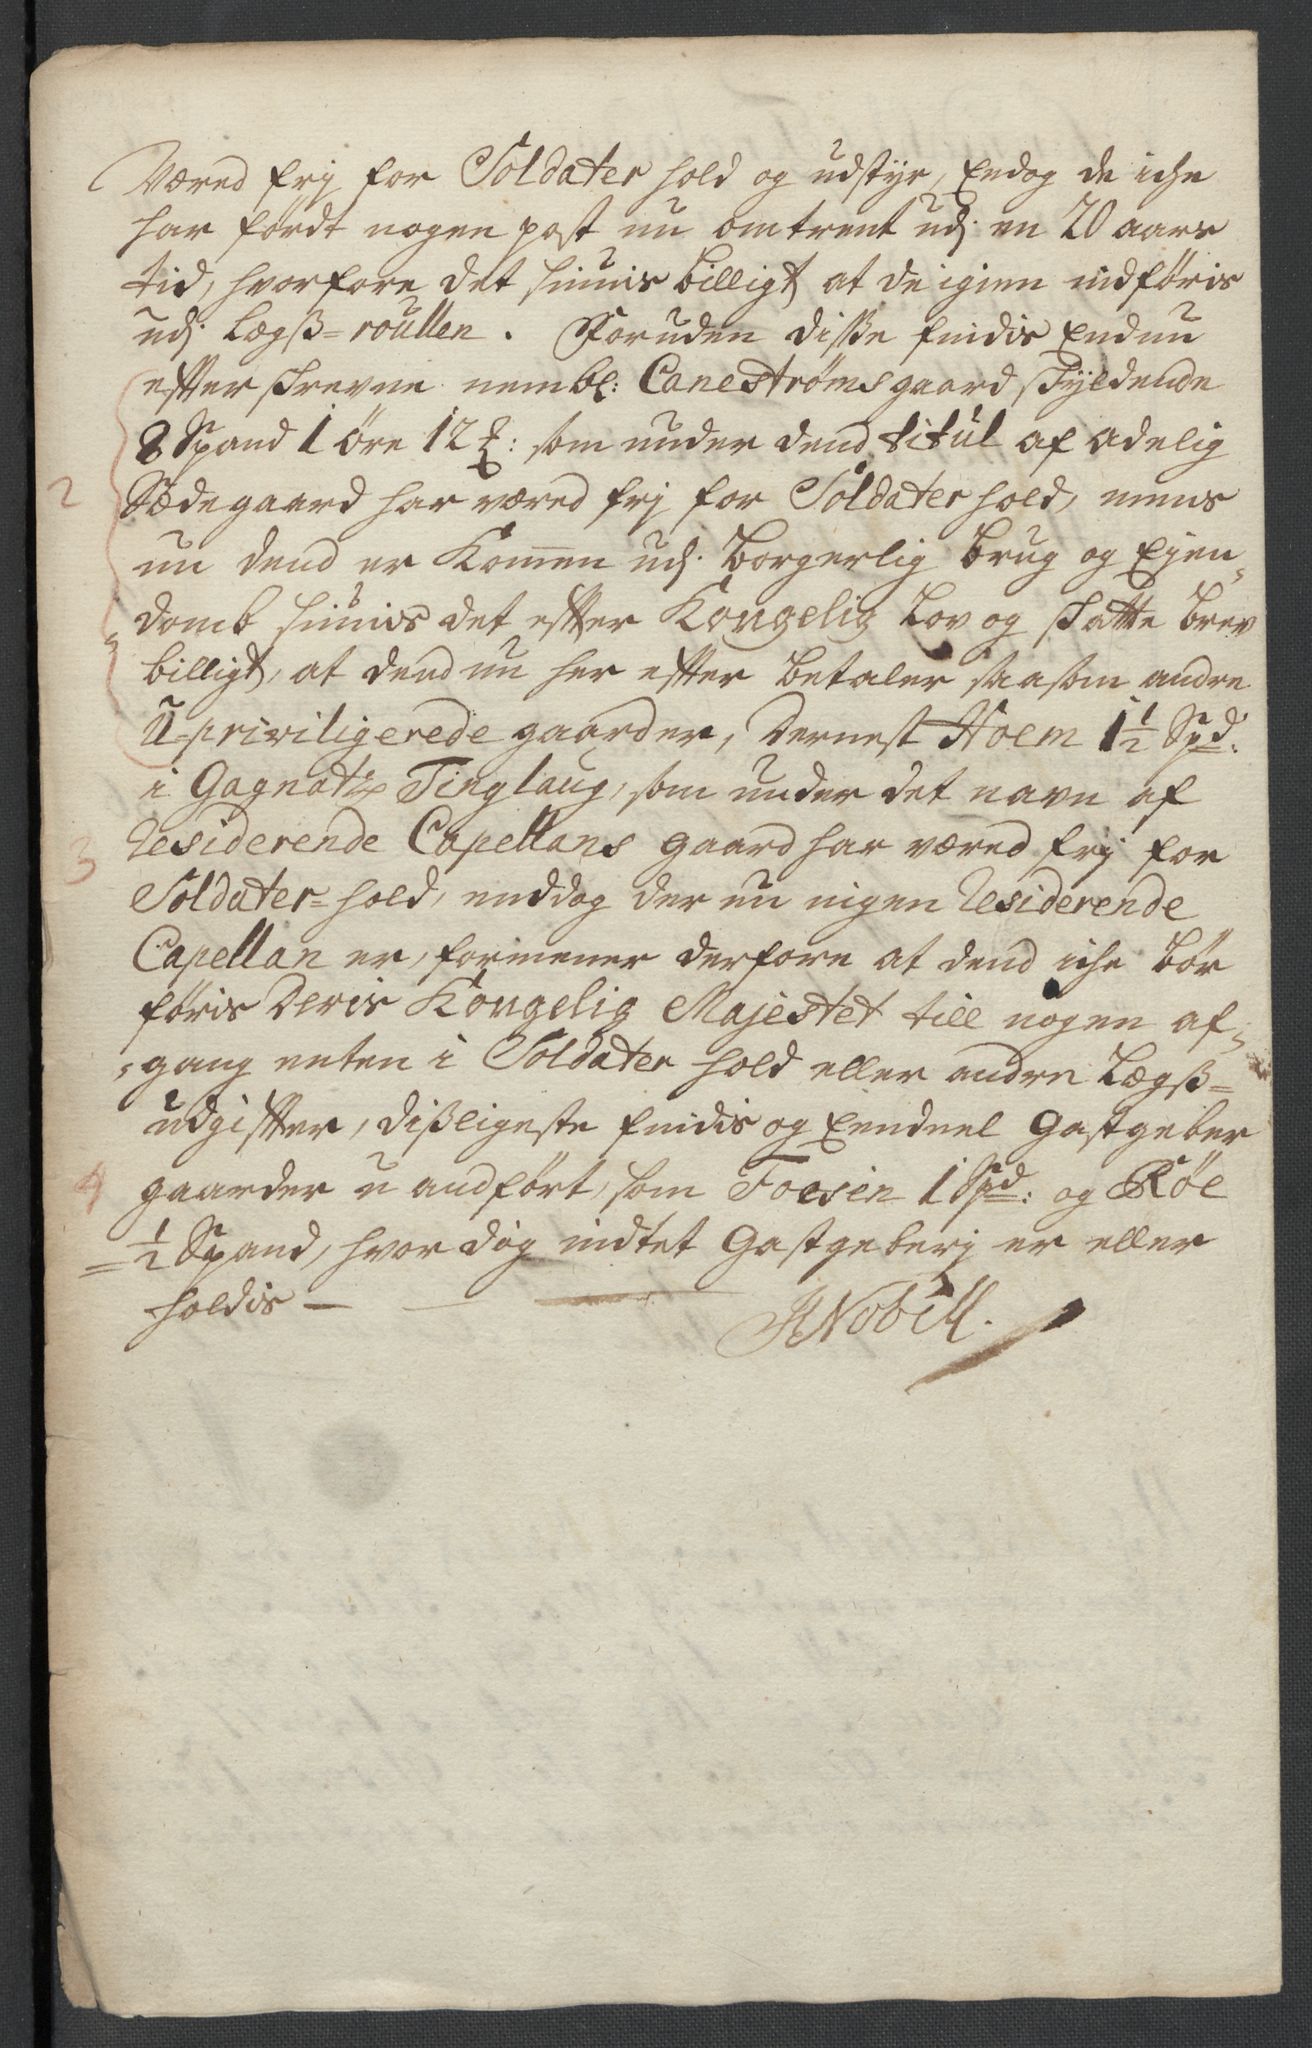 Wæred frj for Soldater hold og udstyr, Endog de iche
har fördt nogen post nu omtrent udj en 20 aars
tid, hvorfore det siunis billigt at de igien indföris
udj Lægß=roullen. Foruden disse findis Endnu
effterskrevne nembl: Canestrøms gaard skyldende
8 Spand 1 öre 12 : som under dend titul af adelig
Sædegaard har væred frj for Soldater hold, mens
nu dend er Kommen udj. borgerlig brug og Ejen„
domb siunis det effter Kongelig Lov og skatte brev
billigt, at dend nu her effter betaler saasom andre
U-priviligerede gaarder, dernest Hoem 1½ Spd:
i Gagnatz Tinglaug, som under det navn af
3 Residerende Capellans gaard har væred frj for
Soldater=hold, enddog der nu ingen Residerende
Capellan er, formener derfore at dend iche bör
föris Deris Kongelig Majestet till nogen af„
„gang enten i Soldater hold eller andre Lægß=
udgiffter, dißligeste findis og Eendeel Gastgeber
4 gaarder u andfört, som Foesen 1 Spd: og Röe
½ Spand, hvor dog indtet Gastgeberj er eller
holdis —
Nobell.
2